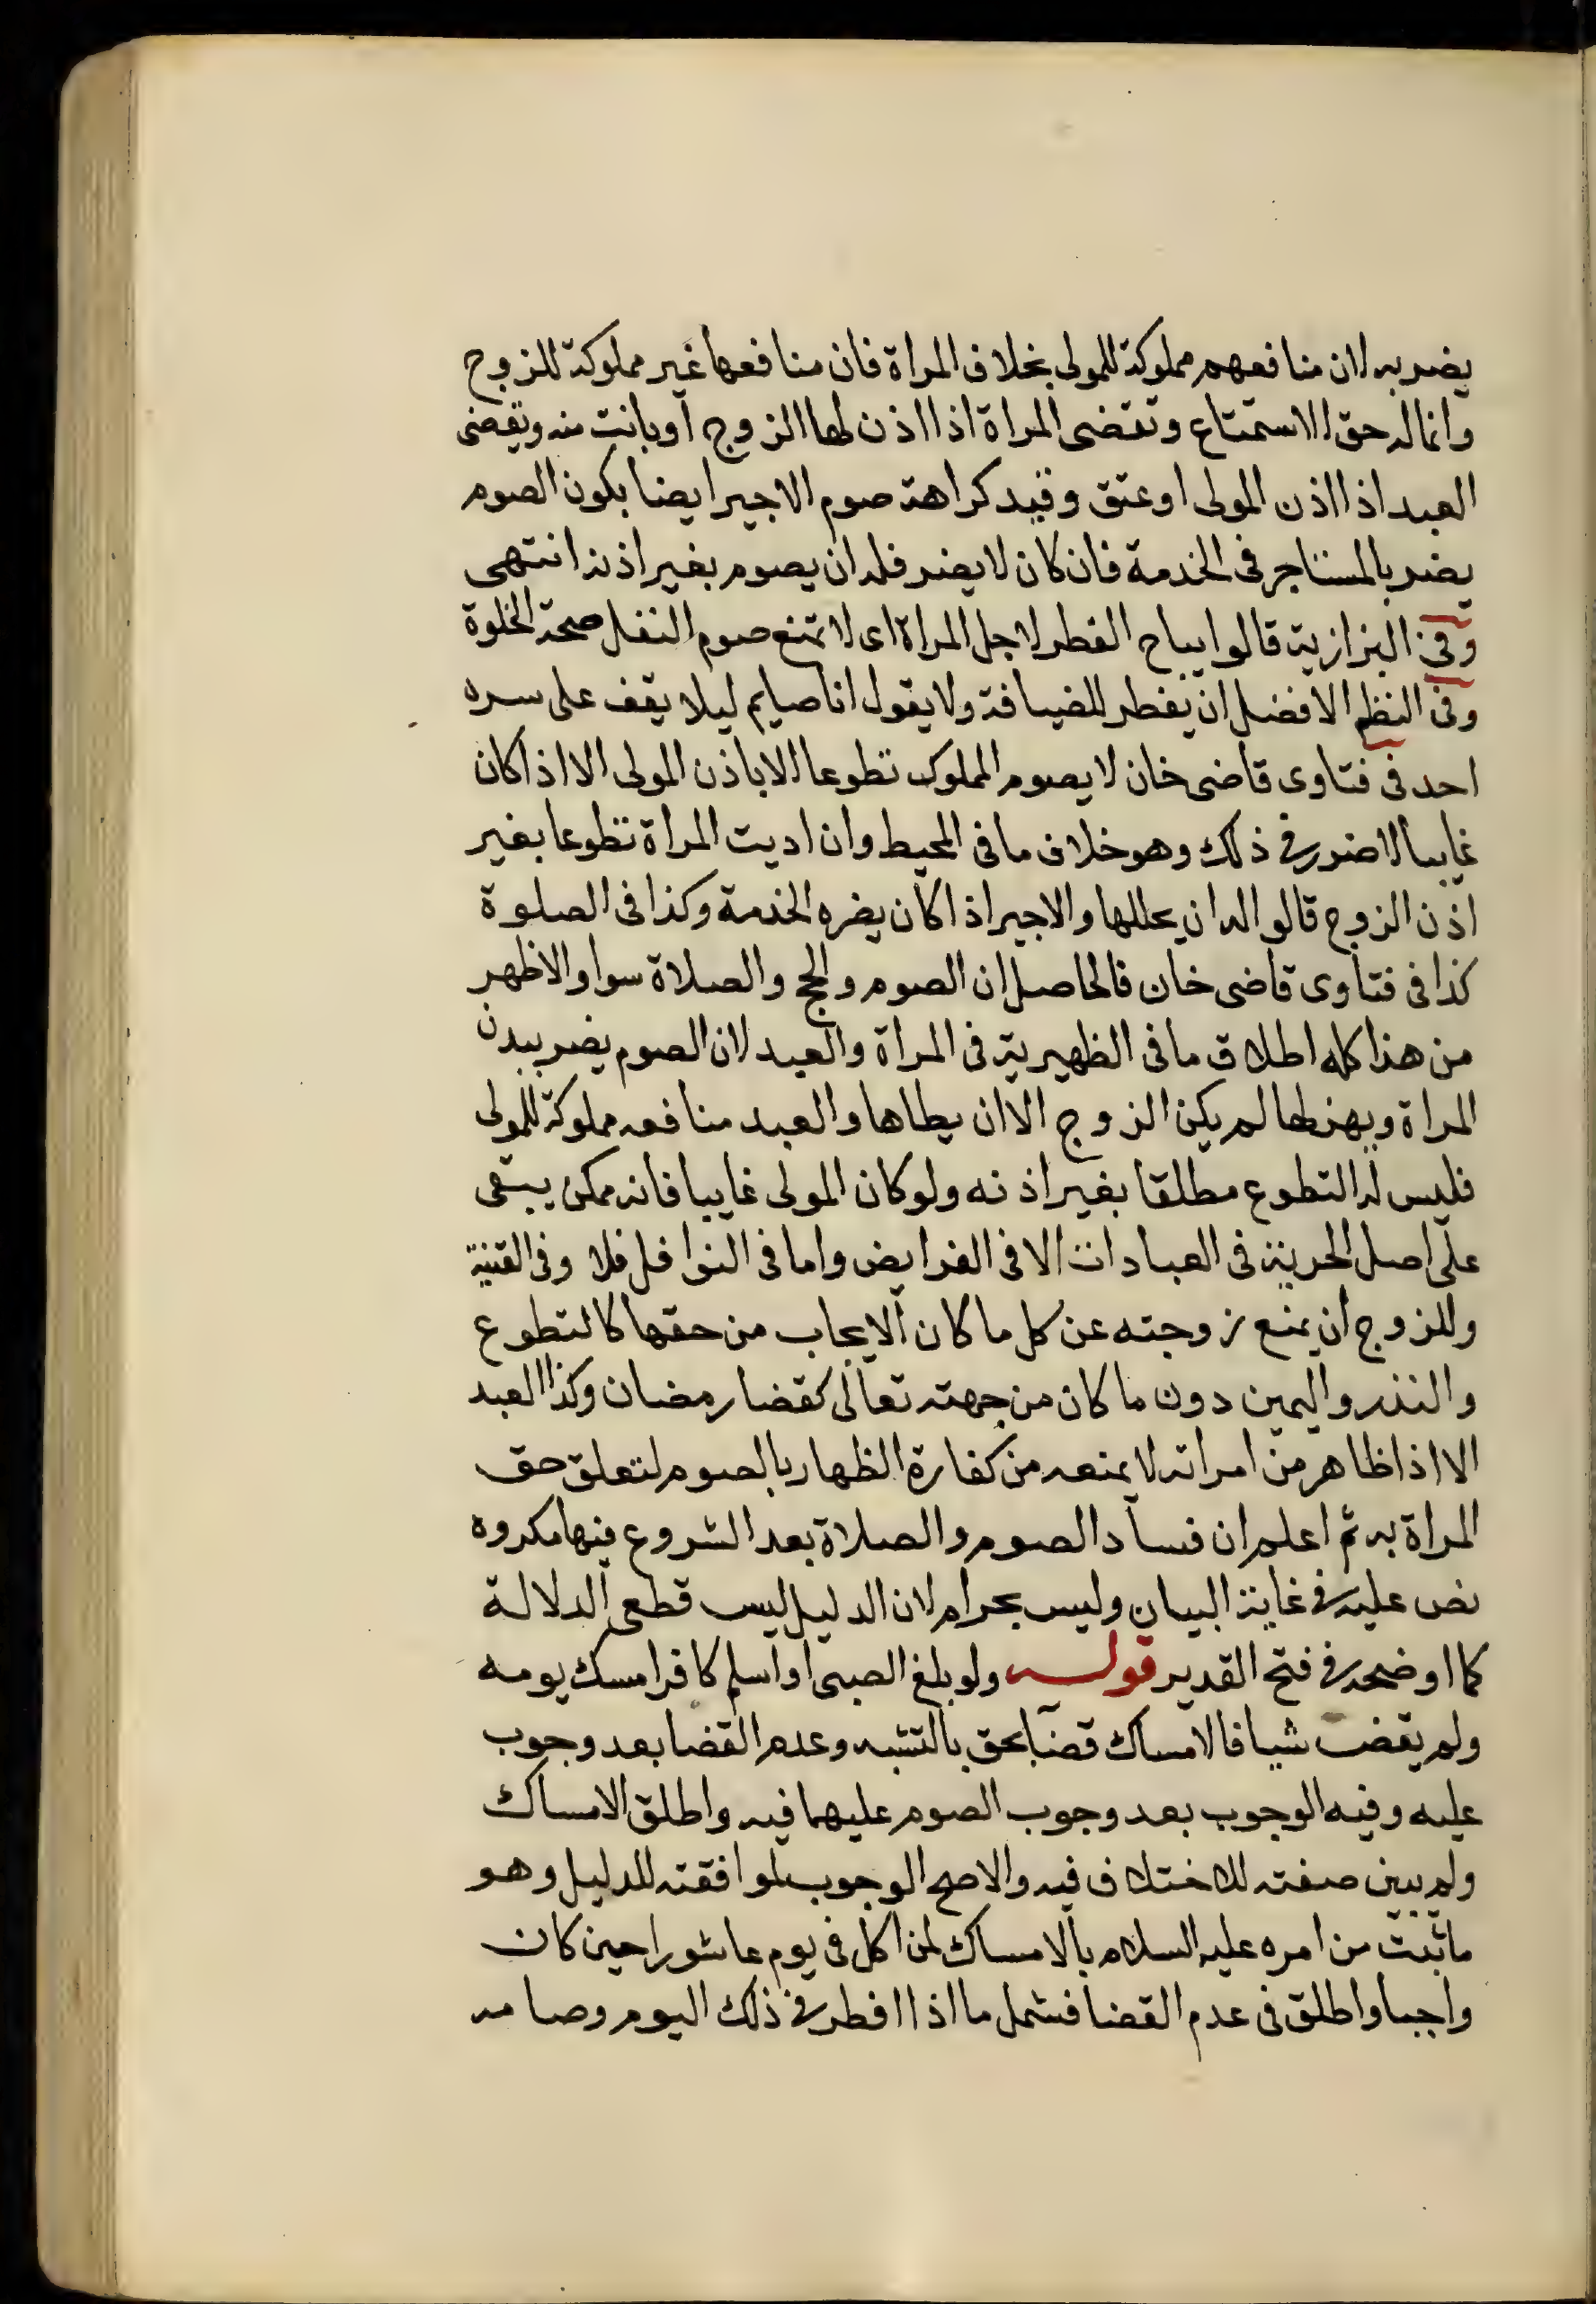 يضر به لان منافعهم مملوكة للمولى بخلاف المراة فان منافعها غير مملوكة للزوج
وانما له حق الاستمتاع وتقضى المراة اذا اذن لها الزوج او بانت منه ويقضى
العبد اذا اذن المولى او عتق وقيد كراهة صوم الاجير ايضا بكون الصوم
يضر بالمستاجر فى الخدمة فان كان لا يضر فله ان يصوم بغير اذنه انتهى
وفى البزازية قالوا يباح الفطر لاجل المراة اى لا تمنع صوم النفل صحة الخلوة
وفى النظم الافضل ان يفطر للضيافة ولا يقول انا صايم ليلا يقف على سره
احد فى فتاوى قاضى خان لا يصوم المملوك تطوعا الا باذن المولى الا اذا كان
غايبا لا ضرر فى ذلك وهو خلاف ما فى المحيط وان اديت المراة تطوعا بغير
اذن الزوج قالوا له ان يحللها والاجير اذا كان يضره الخدمة وكذا فى الصلوة
كذا فى فتاوى قاضى خان فالحاصل ان الصوم والحج والصلاة سوا والاظهر
من هذا كله اطلاق ما فى الظهيرية فى المراة والعبد لان الصوم يضر ببدن
المراة ويهزلها لم يكن الزوج الا ان يطاها والعبد منافعه مملوكة للمولى
فليس له التطوع مطلقا بغير اذنه ولو كان المولى غايبا فانه ممكن يبقى
على اصل الحرية فى العبادات الا فى الفرايض واما فى النوافل فلا وفى القنية
وللزوج ان يمنع زوجته عن كل ما كان الايجاب من حقها كالتطوع
والنذر واليمين دون ما كان من جهته تعالى كقضا رمضان وكذا العبد
الا اذا ظاهر من امراته لا يمنعه من كفارة الظهار بالصوم لتعلق حق
المراة به ثم اعلم ان فساد الصوم والصلاة بعد الشروع فيها مكروه
نص عليه فى غاية البيان وليس بحرام لان الدليل ليس قطعى الدلالة
كما اوضحه فى فتح القدير قوله ولو بلغ الصبى او اسلم كافر امسك يومه
ولم يقض شيا فالامساك قضا بحق بالتشبه وعدم القضا بعد وجوب
عليه وفيه الوجوب بعد وجوب الصوم عليهما فيه واطلق الامساك
ولم يبين صفته للاختلاف فيه والاصح الوجوب لموافقته للدليل وهو
ما ثبت من امره عليه السلام بالامساك لمن اكل فى يوم عاشورا حين كان
واجبا واطلق فى عدم القضا فشمل ما اذا افطر فى ذلك اليوم وصامه